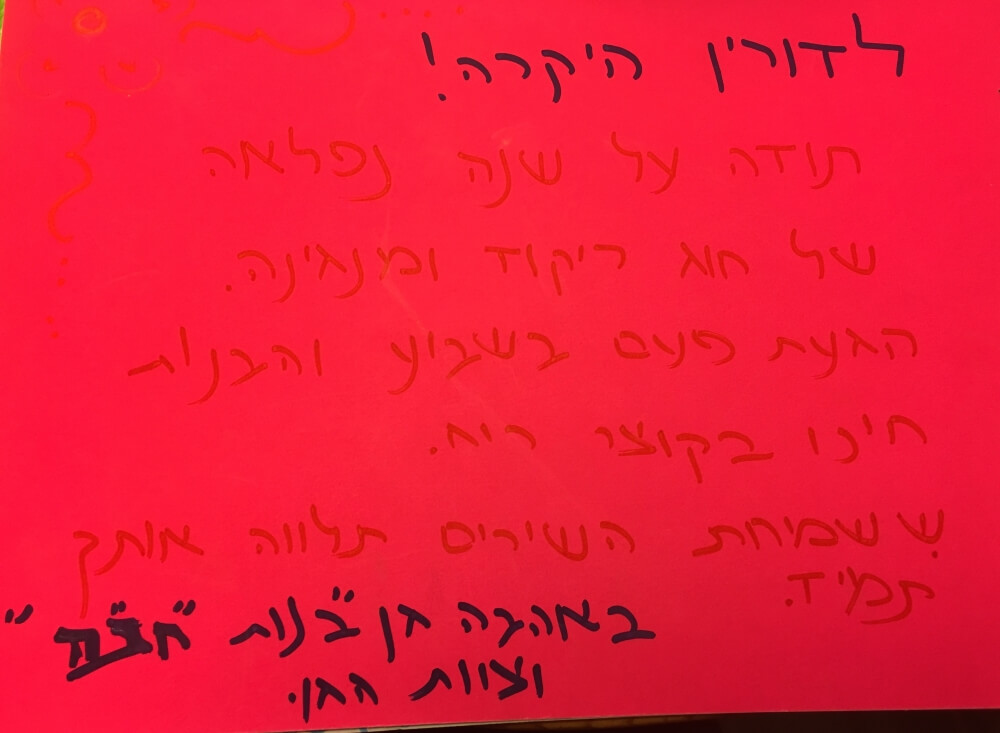 לדורין היקרה!
תודה על שנה נפלאה
של חוג ריקוד ומנגינה.
הגעת פעם בשבוע והבנות
חיכו בקוצר רוח.
ששמחת השירים תלווה אותך
תמיד.
באהבה גן בנות
וצוות הגן.